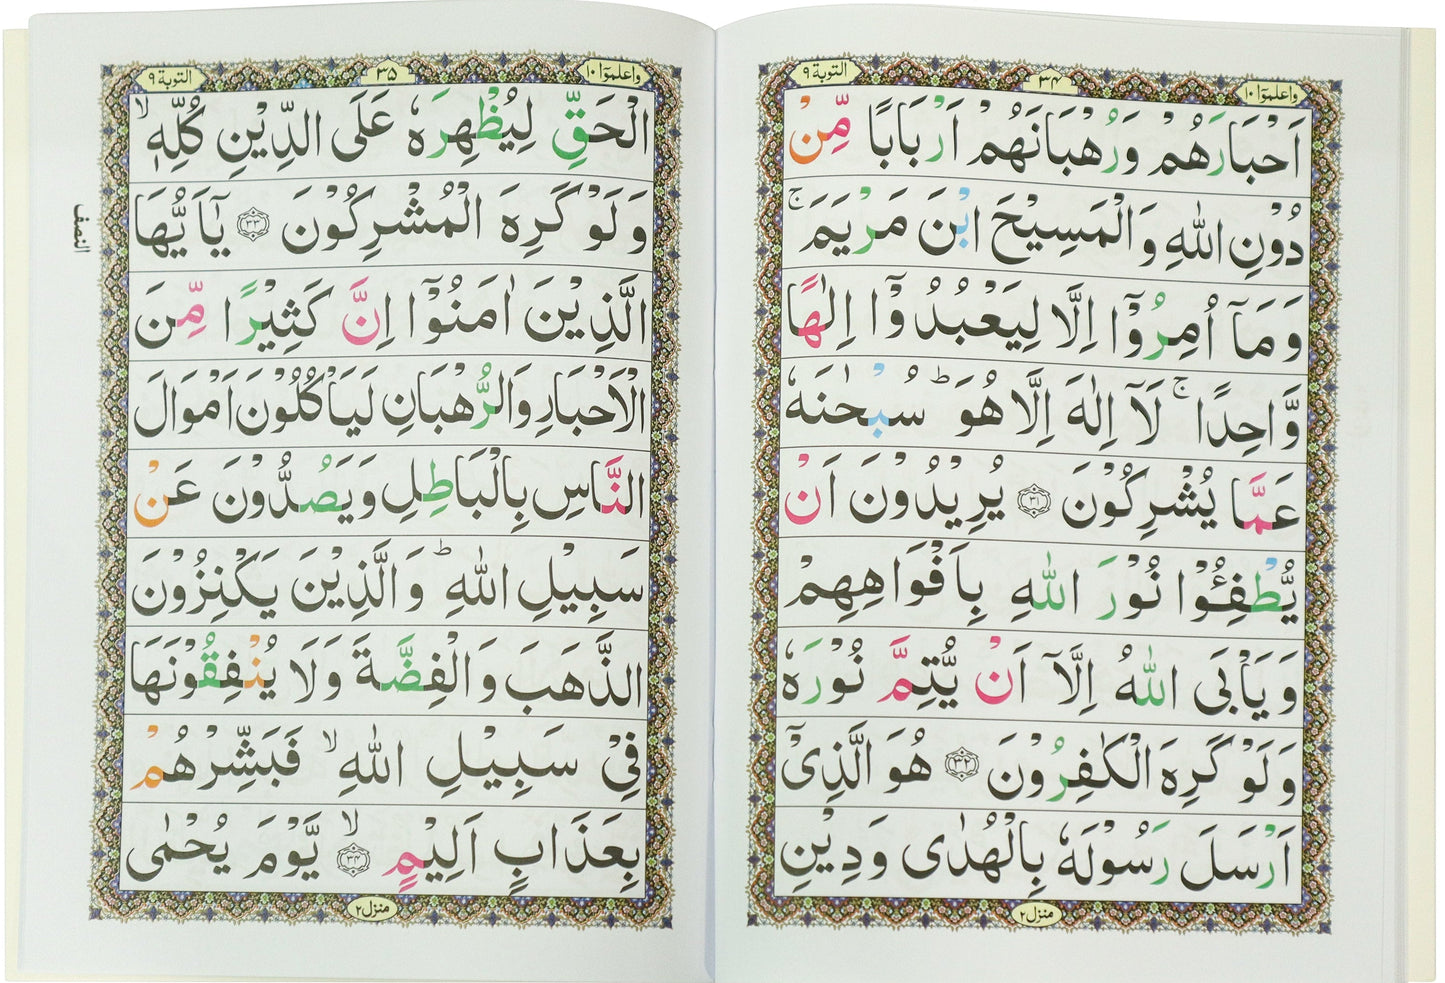 واعلموٓا ١٠
٣٤
التوبة ٩
اَحْبَارَهُمْ وَرُهْبَانَهُمْ اَرْبَابًا مِّنْ
دُوْنِ اللّٰهِ وَالْمَسِيْحَ ابْنَ مَرْيَمَ ۚ
وَمَآ اُمِرُوْٓا اِلَّا لِيَعْبُدُوْٓا اِلٰهًا
وَّاحِدًا ۚ لَآ اِلٰهَ اِلَّا هُوَ ؕ سُبْحٰنَهٗ
عَمَّا يُشْرِكُوْنَ ﴿٣١﴾ يُرِيْدُوْنَ اَنْ
يُّطْفِـُٔوْا نُوْرَ اللّٰهِ بِاَفْوَاهِهِمْ
وَيَاْبَى اللّٰهُ اِلَّآ اَنْ يُّتِمَّ نُوْرَهٗ
وَلَوْ كَرِهَ الْكٰفِرُوْنَ ﴿٣٢﴾ هُوَ الَّذِيْٓ
اَرْسَلَ رَسُوْلَهٗ بِالْهُدٰى وَدِيْنِ
منزل ٢
واعلموٓا ١٠
٣٥
التوبة ٩
الْحَقِّ لِيُظْهِرَهٗ عَلَى الدِّيْنِ كُلِّهٖ ۙ
وَلَوْ كَرِهَ الْمُشْرِكُوْنَ ﴿٣٣﴾ يٰٓاَيُّهَا
النصف
الَّذِيْنَ اٰمَنُوْٓا اِنَّ كَثِيْرًا مِّنَ
الْاَحْبَارِ وَالرُّهْبَانِ لَيَاْكُلُوْنَ اَمْوَالَ
النَّاسِ بِالْبَاطِلِ وَيَصُدُّوْنَ عَنْ
سَبِيْلِ اللّٰهِ ؕ وَالَّذِيْنَ يَكْنِزُوْنَ
الذَّهَبَ وَالْفِضَّةَ وَلَا يُنْفِقُوْنَهَا
فِيْ سَبِيْلِ اللّٰهِ ۙ فَبَشِّرْهُمْ
بِعَذَابٍ اَلِيْمٍ ﴿٣٤﴾ ۙ يَّوْمَ يُحْمٰى
منزل ٢